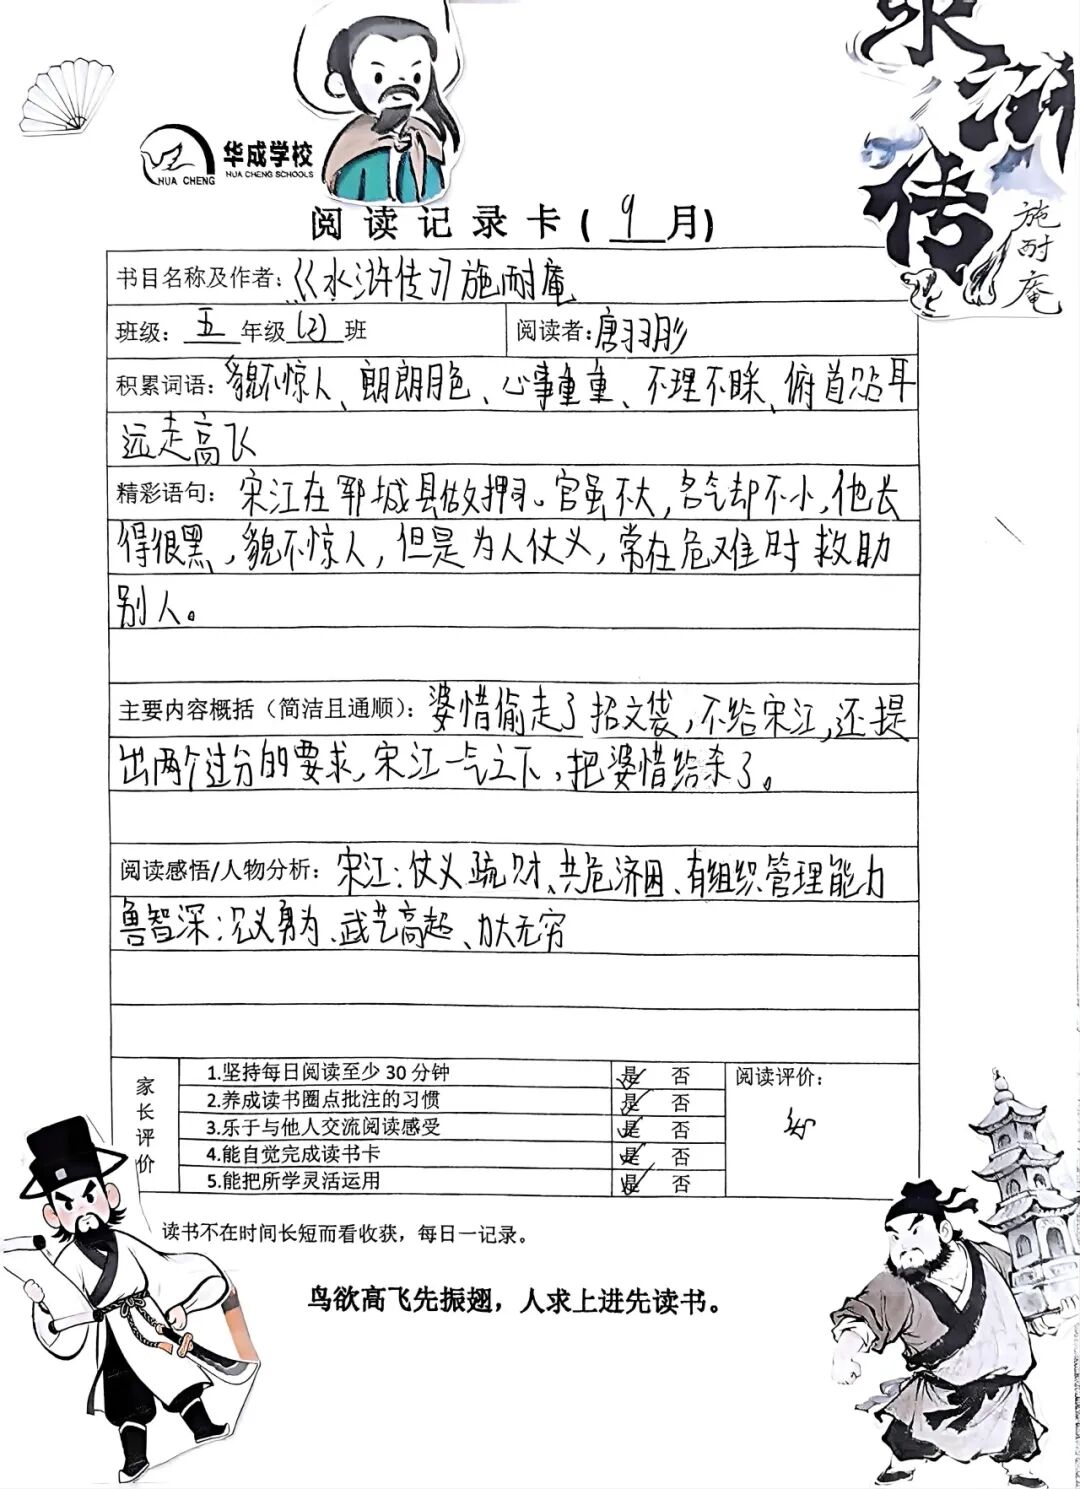 水浒传
施耐庵
华成学校
HUA CHENG
HUA CHENG SCHOOLS
阅读记录卡(9月)
书目名称及作者:《水浒传》施耐庵
班级:五年级(2)班 阅读者:唐羽彤
积累词语:貌不惊人、朗朗月色、心事重重、不理不睬、俯首贴耳
远走高飞
精彩语句:宋江在郓城县做押司。官虽不大,名气却不小,他长
得很黑,貌不惊人,但是为人仗义,常在危难时救助
别人。
主要内容概括(简洁且通顺):婆惜偷走了招文袋,不给宋江,还提
出两个过分的要求,宋江一气之下,把婆惜给杀了。
阅读感悟/人物分析:宋江:仗义疏财、共危济困、有组织管理能力
鲁智深:见义勇为、武艺高超、力大无穷
家长评价
1.坚持每日阅读至少30分钟 是 否
2.养成读书圈点批注的习惯 是 否
3.乐于与他人交流阅读感受 是 否
4.能自觉完成读书卡 是 否
5.能把所学灵活运用 是 否
阅读评价:
读书不在时间长短而看收获,每日一记录。
鸟欲高飞先振翅,人求上进先读书。